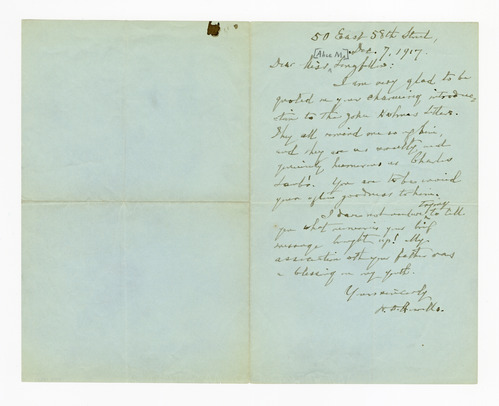 50 East 58th Street,
Dec. 7, 1917.
[Alice M.]
Dear Miss Longfellow:
I am very glad to be
quoted in your charming introduc-
tion to the John Holmes letters.
They all remind one so of him,
and they are as and
humorous as Charles
Lamb's. You are to be
your goodness to him.
I dare not venture to trying to tell
you what memories your brief
message brought up! My
association with your father was
a blessing in my youth.
Yours sincerely
W. D. Howells.